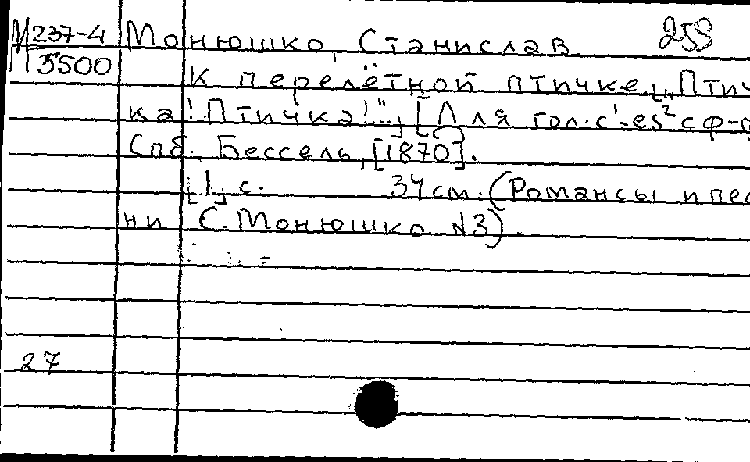 М 237-4 Монюшко, Станислав. 258
3500 К перелётной птичке. „Птич
ка! Птичка!"... [Для гол. c¹-es² с ф-п
Спб., Бессель, [1870].
[1] с. 34 см. (Романсы и пес
ни С. Монюшко N3).
27